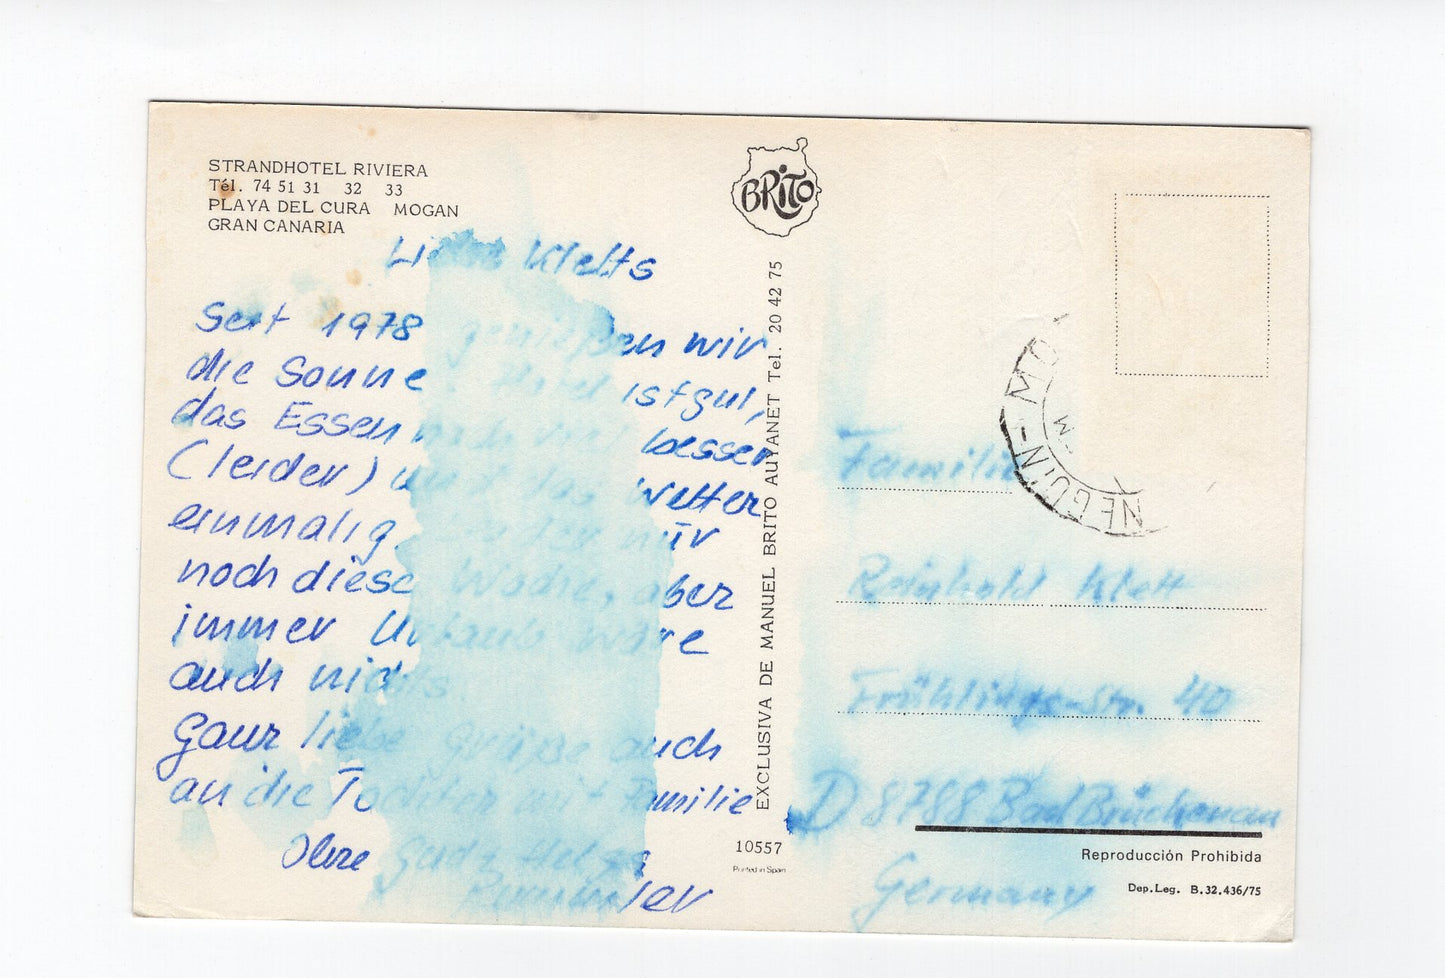 STRANDHOTEL RIVIERA
Tél. 74 51 31 32 33
PLAYA DEL CURA MOGAN
GRAN CANARIA
Liebe Kletts
Seit 1978 genießen wir
die Sonne. Hotel ist gut,
das Essen noch viel besser
(leider) und das Wetter
einmalig. Leider nur
noch diese Woche, aber
immer Urlaub wäre
auch nichts.
Ganz liebe Grüße auch
an die Tochter mit Familie
Ihre
BRITO
EXCLUSIVA DE MANUEL BRITO AUYANET Tel. 20 42 75
10557
Printed in Spain
NEGUIN-MO
Familie
Reinhold Klett
Frühlings-Str. 40
D 8788 Bad Brückenau
Germany
Reproducción Prohibida
Dep.Leg. B.32.436/75